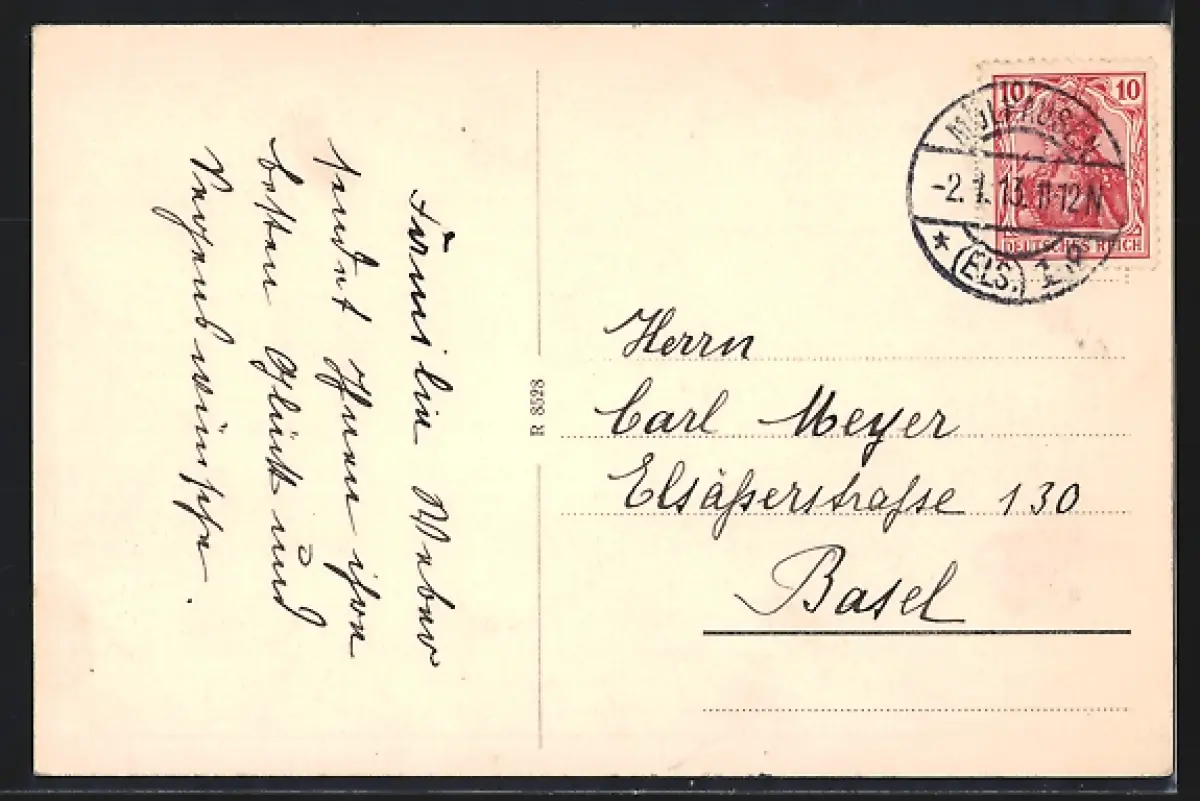 Familie Weber
sendet Ihnen ihre
besten Glück und
Segenswünsche.
R 8528
10 10
DEUTSCHES REICH
MÜLHAUSEN
-2.1.13. 11-12N
* (ELS.) 1 g
Herrn
Carl Meyer
Elsäßerstraße 130
Basel